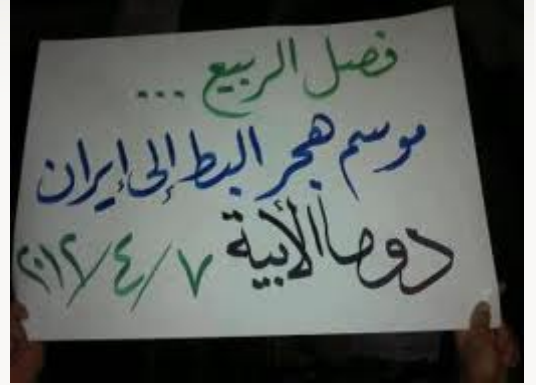 فصل الربيع ...
موسم هجر البط إلى إيران
دوما الأبية ٧/٤/٢٠١٢